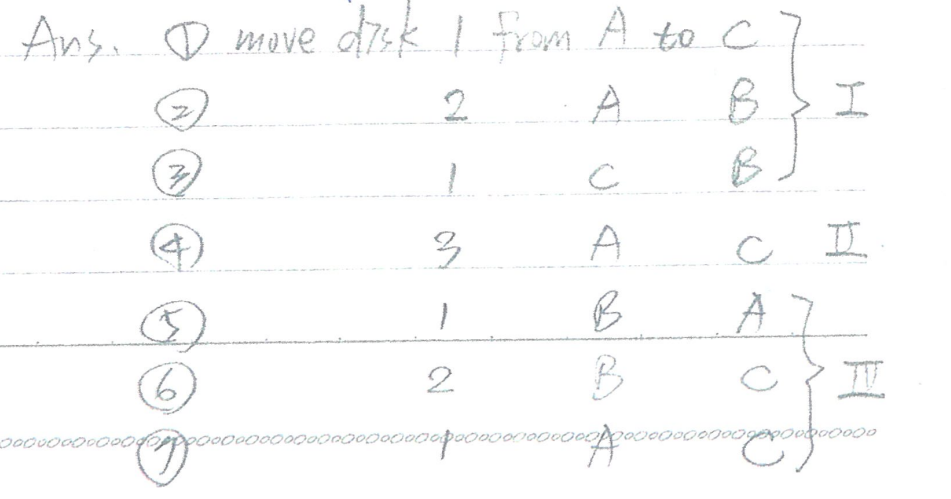 Ans. ① move disk 1 from A to C
② 2 A B } I
③ 1 C B
④ 3 A C II
⑤ 1 B A
⑥ 2 B C } III
⑦ 1 A C